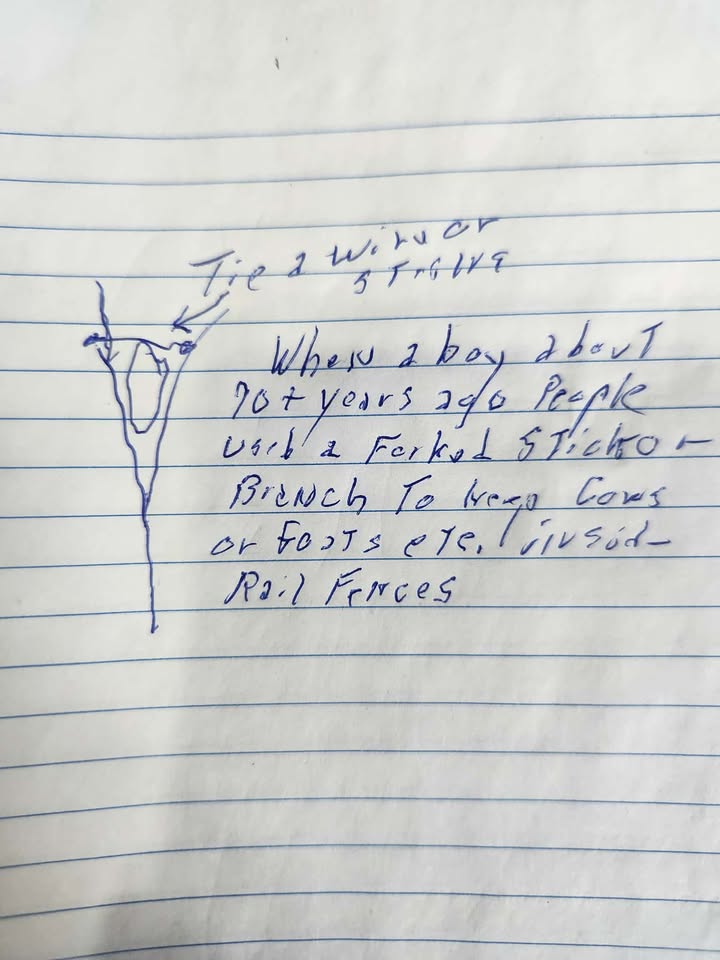 Tie a wire or
string
When a boy about
70+ years ago People
used a Forked Stick or
Branch To keep Cows
or Goats etc. insid
Rail Fences